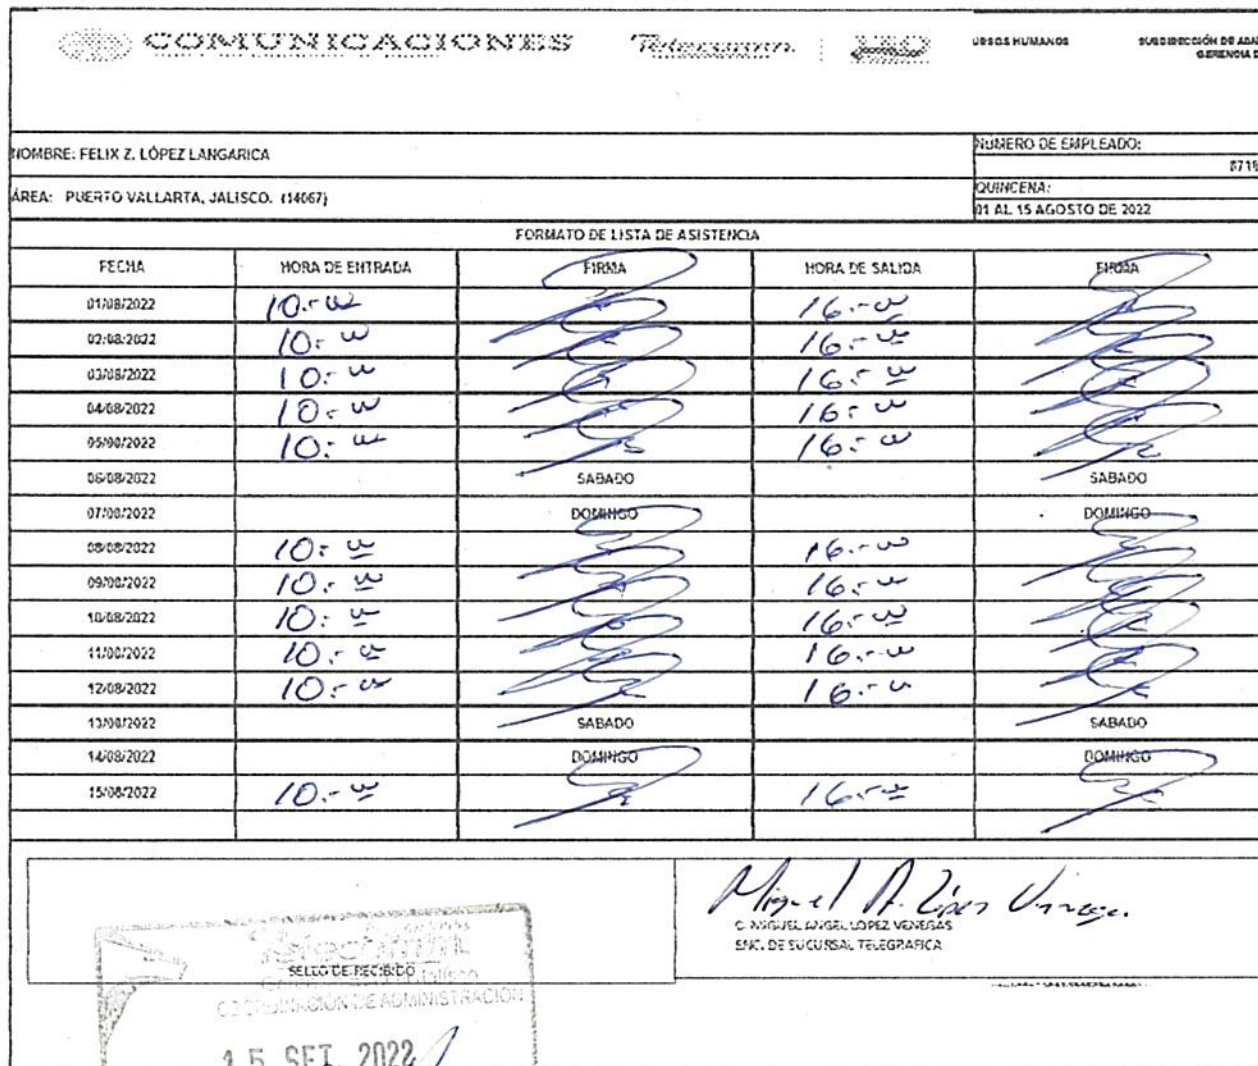 COMUNICACIONES Telecomm
URSOS HUMANOS
SUBDIRECCIÓN DE
GERENCIA D
NOMBRE: FELIX Z. LÓPEZ LANGARICA
NÚMERO DE EMPLEADO:
6719
ÁREA: PUERTO VALLARTA, JALISCO. (14067)
QUINCENA:
01 AL 15 AGOSTO DE 2022
FORMATO DE LISTA DE ASISTENCIA
FECHA HORA DE ENTRADA FIRMA HORA DE SALIDA FIRMA
01/08/2022 10:- 00 16:- 00
02/08/2022 10:- 00 16:- 00
03/08/2022 10:- 00 16:- 00
04/08/2022 10:- 00 16:- 00
05/08/2022 10:- 00 16:- 00
06/08/2022 SABADO SABADO
07/08/2022 DOMINGO DOMINGO
08/08/2022 10:- 00 16:- 00
09/08/2022 10:- 00 16:- 00
10/08/2022 10:- 00 16:- 00
11/08/2022 10:- 00 16:- 00
12/08/2022 10:- 00 16:- 00
13/08/2022 SABADO SABADO
14/08/2022 DOMINGO DOMINGO
15/08/2022 10:- 00 16:- 00
Miguel A. López Venegas
C. MIGUEL ANGEL LOPEZ VENEGAS
ENC. DE SUCURSAL TELEGRAFICA
SELLO DE RECIBIDO
COORDINACIÓN DE ADMINISTRACIÓN
15 SET. 2022